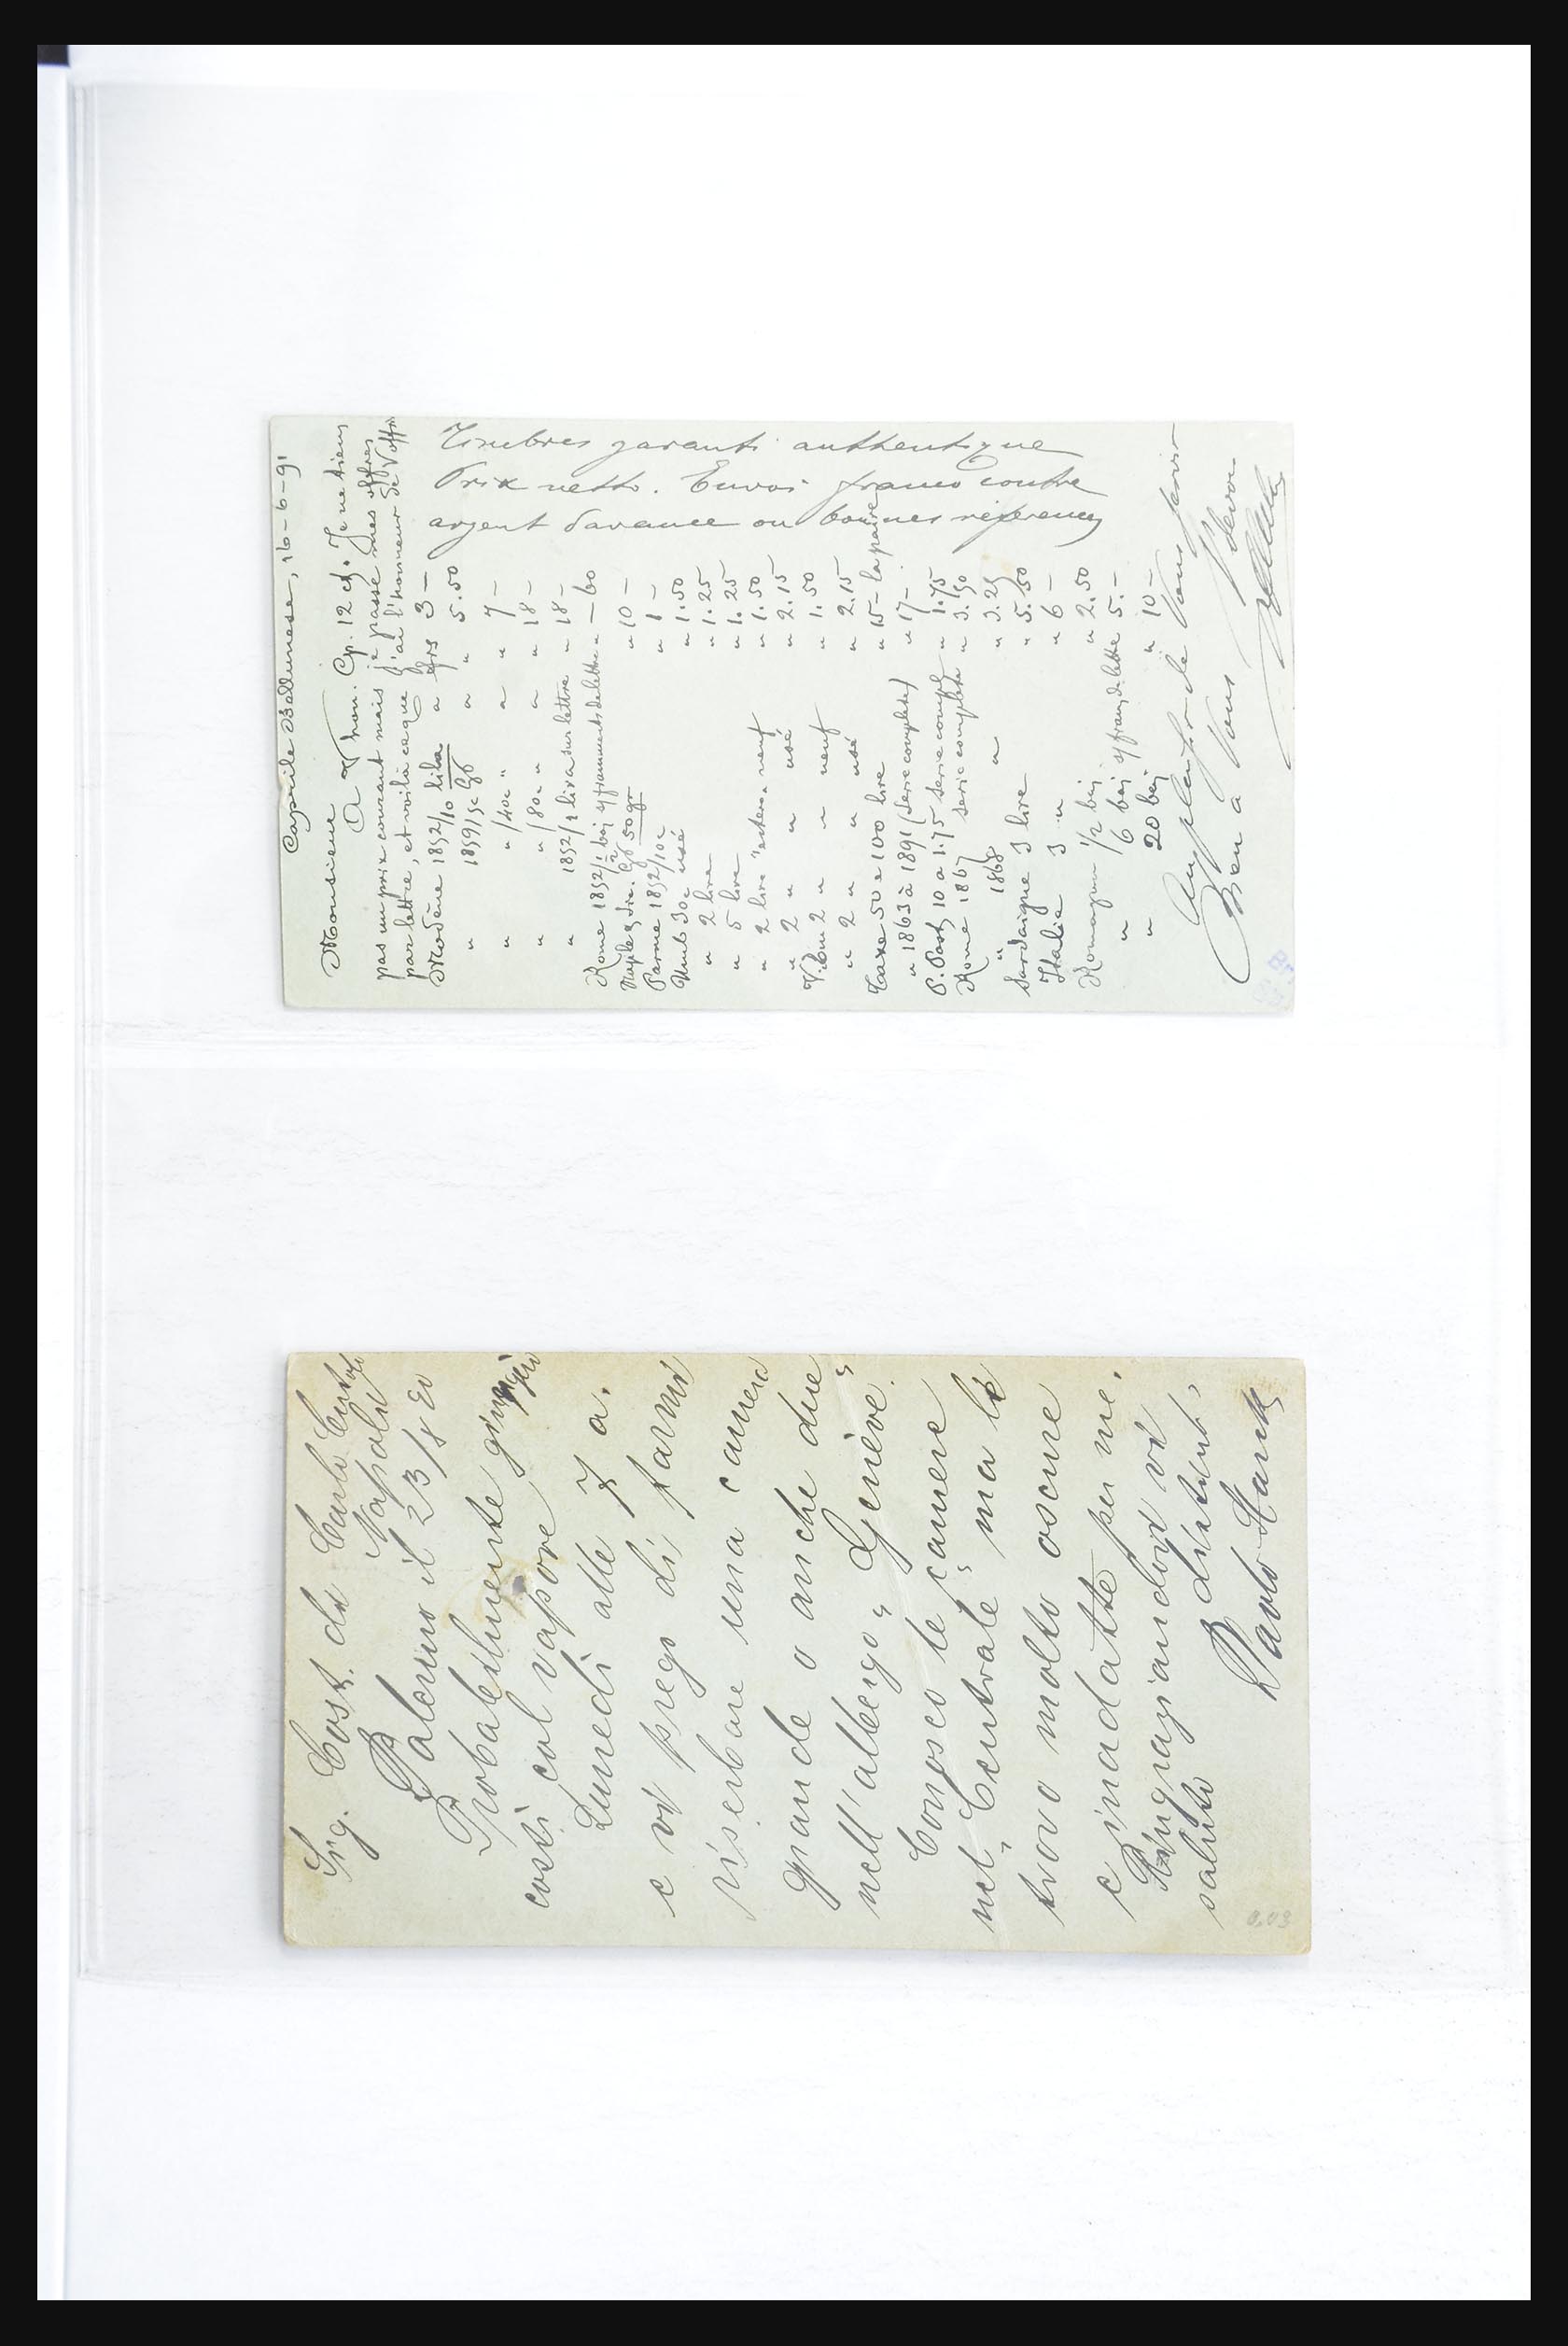 Caprile Bellunese, 16-6-91
Monsieur
A v hon. Cp. 12 ct. Je ne tiens
pas un prix courant mais je passe mes offres
par lettre, et voilà ce que j'ai l'honneur de V offrir
Modène 1852/10 lila a frs 3 –
" 1859/5c Gb " " 5.50
" " /40c " " " 7 –
" " /80c " " " 18 –
" 1852/1 lira sur lettre " 18 –
Rome 1852/½ baj s/fragments de lettre " – 60
Naples Sic. Gb 50 gr " 10 –
Parme 1852/10c " 1 –
Umb 30c usé " 1.50
" 2 lire " 1.25
" 5 lire " 1.25
" 2 lire "estero" neuf " 1.50
" 2 " " usé " 2.15
2 " " neuf " 1.50
" 2 " " usé " 2.15
Taxe 50 e 100 lire " 15 – la paire
" 1863 à 1891 (serie complete) " 17 –
P. Post 10 a 1.75 serie compl " 1.75
Rome 1867 serie complete " 3.50
" 1868 " " 3.25
Sardaigne 3 lire " 5.50
Italie 3 " " 6 –
Romagne ½ baj " 2.50
" 6 baj s/fragm de lettre 5. –
" 20 baj " 10 –
Au plaisir de Vous servir
Bien à Vous
Timbres garanti authentique
Prix netto. Envoi franco contre
argent d'avance ou bonnes réferences
Sig. Cost. di Carlo
Napoli
Palermo il 23/8 80
Probabilmente giungerò
costi col vapore
Lunedi alle 7 a.
e vi prego di farmi
riserbare una camera
grande o anche due
nell'albergo "Genève".
Conosco le camere
nel "Centrale" ma le
trovo molto oscure
e inadatte per me.
Ringraziandovi vi
saluto distint,
Paolo
0,03